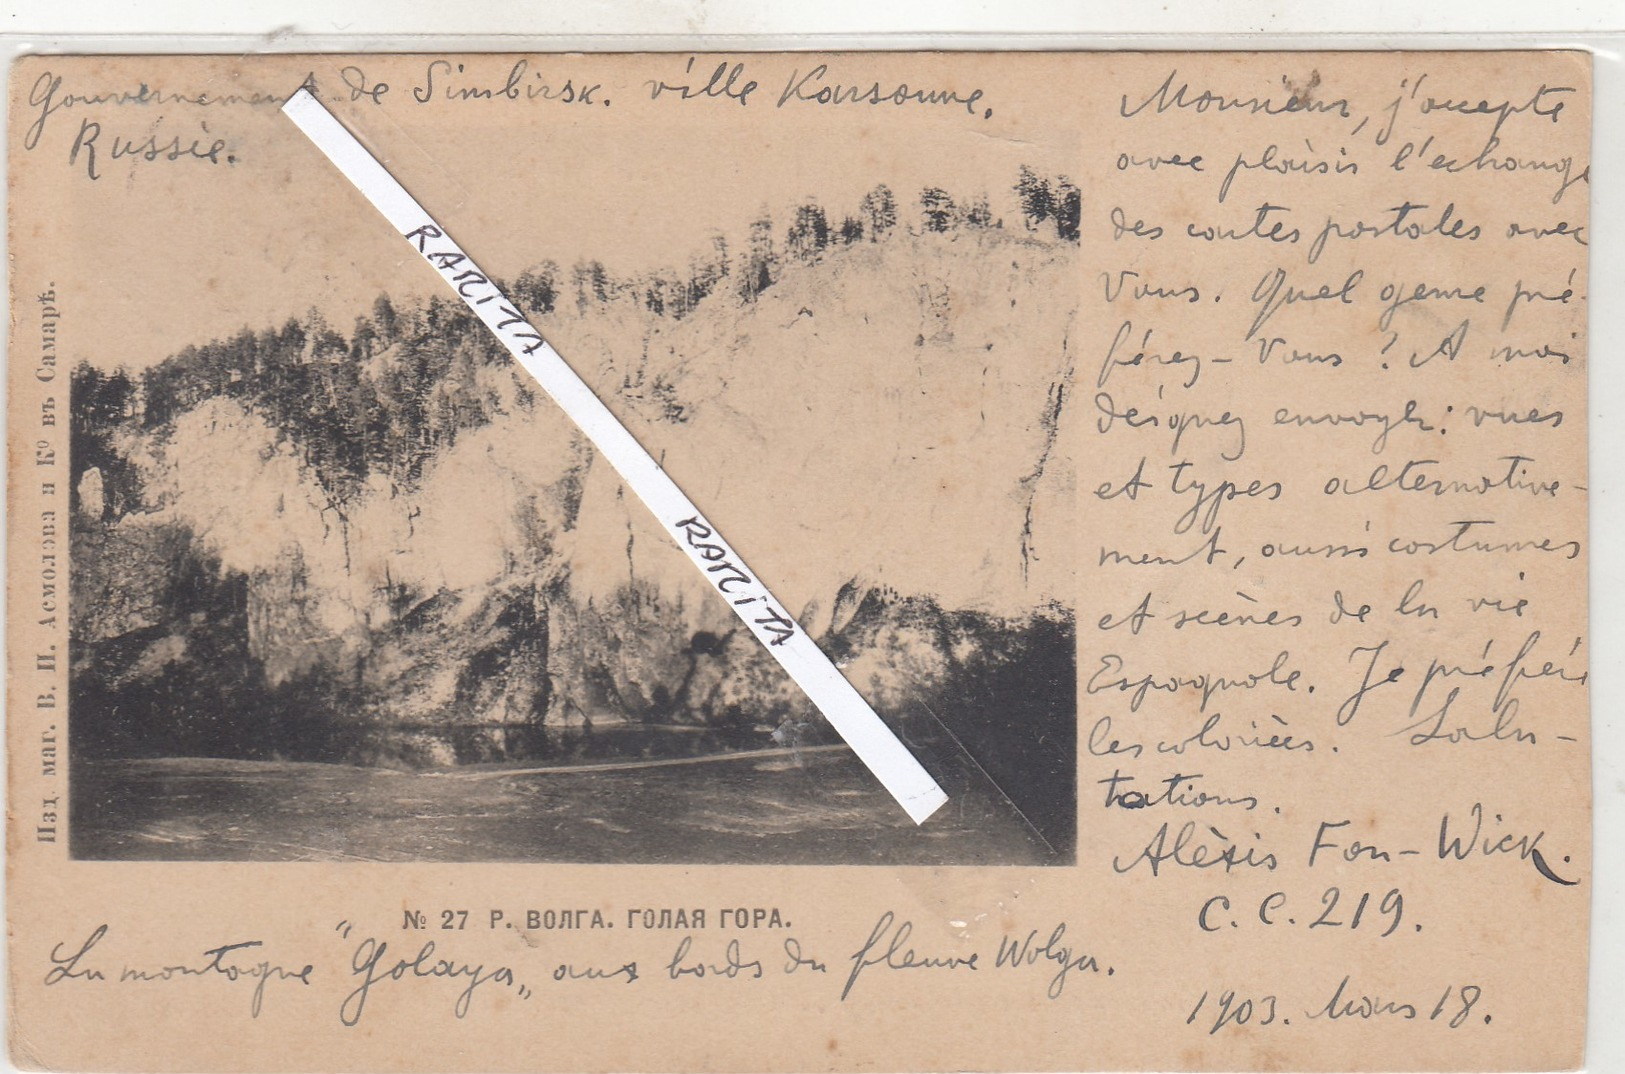 Gouvernement de Simbirsk. ville Karsoune.
Russie.
Monsieur, j'accepte
avec plaisir l'echange
des cartes postales avec
Vous. Quel genre pré-
férez-Vous? A moi
envoyer: vues
et types alternative-
ment, aussi costumes
et scènes de la vie
Espagnole. Je préfère
les coloriées. Salu-
tations.
Alèxis Fon-Wick.
C. C. 219.
1903. Mars 18.
Изд. маг. В. П. Асмолова и Ко въ Самарѣ.
RARITA
RARITA
№ 27 Р. ВОЛГА. ГОЛАЯ ГОРА.
La montagne "Golaya" aux bords du fleuve Wolga.